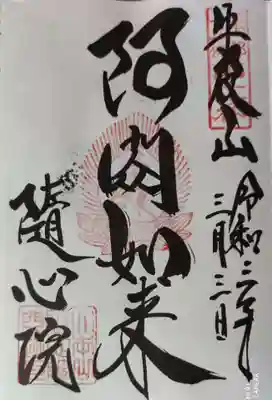 牛皮山
令和三年
三月三日
阿閦如来
隨心院